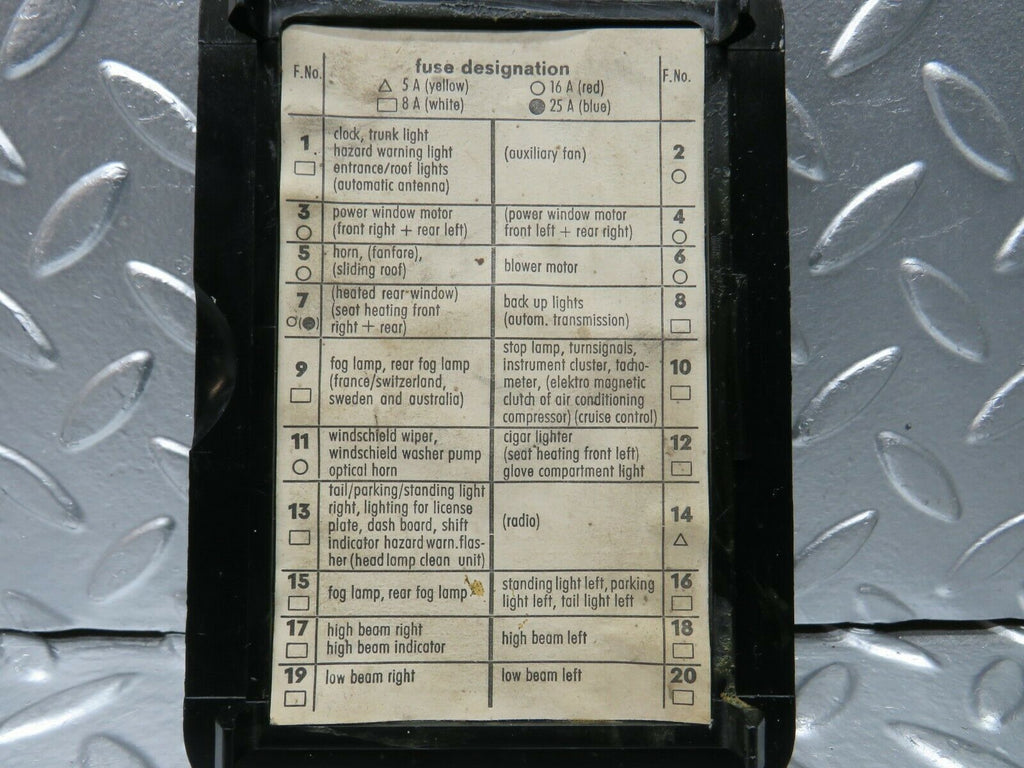 fuse designation
F.No. △ 5 A (yellow) ○ 16 A (red) F.No.
□ 8 A (white) ● 25 A (blue)
1 □
clock, trunk light
hazard warning light
entrance/roof lights
(automatic antenna)
(auxiliary fan)
2 ○
3 ○
power window motor
(front right + rear left)
(power window motor
front left + rear right)
4 ○
5 ○
horn, (fanfare),
(sliding roof)
blower motor
6 ○
7 ○(●)
(heated rear window)
(seat heating front
right + rear)
back up lights
(autom. transmission)
8 □
9 □
fog lamp, rear fog lamp
(france/switzerland,
sweden and australia)
stop lamp, turnsignals,
instrument cluster, tacho-
meter, (elektro magnetic
clutch of air conditioning
compressor) (cruise control)
10 □
11 ○
windschield wiper,
windschield washer pump
optical horn
cigar lighter
(seat heating front left)
glove compartment light
12 □
13 □
tail/parking/standing light
right, lighting for license
plate, dash board, shift
indicator hazard warn.flas-
her (head lamp clean unit)
(radio)
14 △
15 □
fog lamp, rear fog lamp
standing light left, parking
light left, tail light left
16 □
17 □
high beam right
high beam indicator
high beam left
18 □
19 □
low beam right
low beam left
20 □